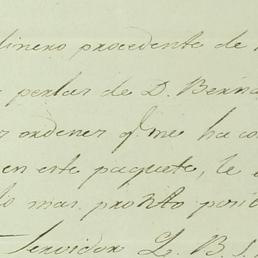 dinero procedente de
perlas de D. Berna
ordenes q. me ha co
en este paquete, le
lo mas pronto posi
Servidor Q. B. S.